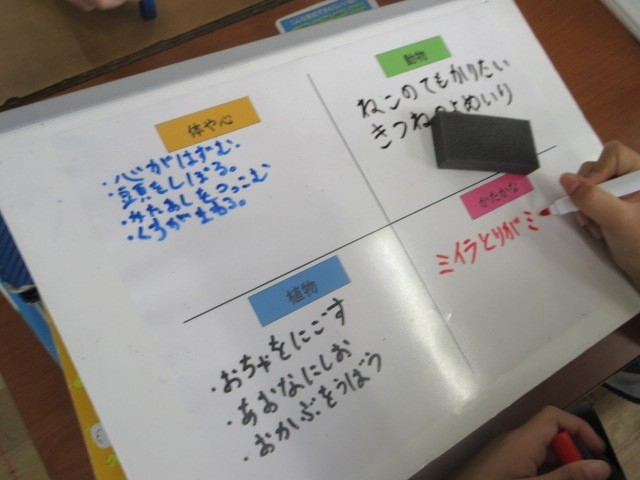 体や心
・心がはずむ。
・頭をしぼる。
・かたあしをつっこむ
・くちがすべる。
動物
ねこのてもかりたい
きつねのよめいり
かたかな
ミイラとりがミ
植物
・おちゃをにごす
・あおなにしお
・おかぶをうばう